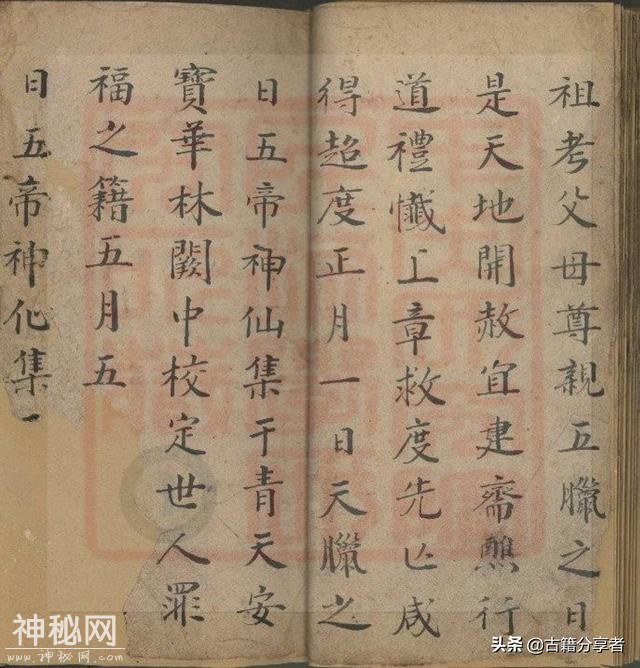 祖考父母尊親五臘之日
是天地開赦宜建齋醮行
道禮懺上章救度先亡咸
得超度正月一日天臘之
日五帝神仙集于青天安
寶華林闕中校定世人罪
福之籍五月五
日五帝神化集
神秘网
www.shenmiw.com
头条 @古籍分享者